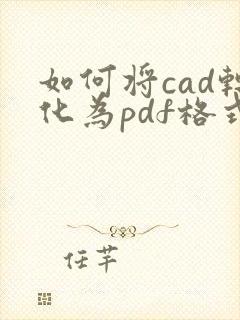 如何将cad转
化为pdf格式
任芊